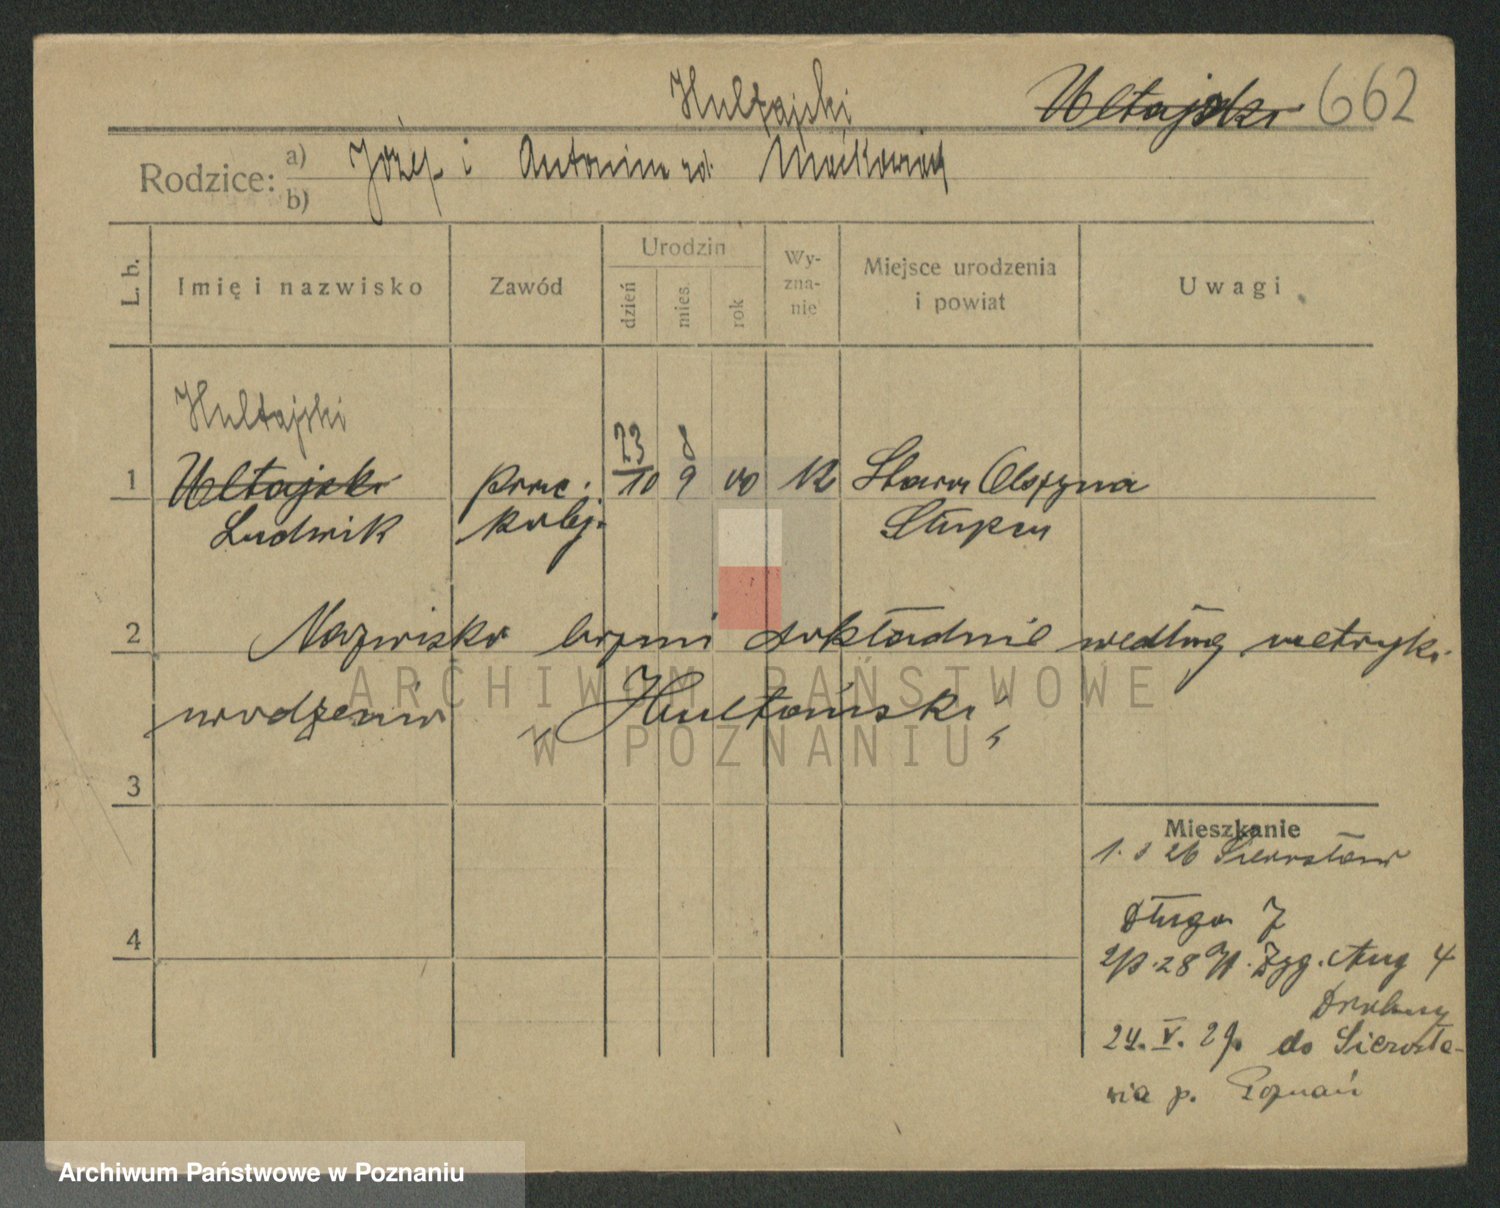 Hultajski Ultajski 662
Rodzice: a) Józef i Antonina rd.
b)
L. b. Imię i nazwisko Zawód Urodzin dzień mies. rok Wy-zna-nie Miejsce urodzenia i powiat Uwagi
Hultajski
23 8
1 Ultajski prac. 10 9 00 K Stara Olszyna
Ludwik kolej.
2 Nazwisko brzmi dokładnie według metryki
urodzenia „Hultański”
3
Mieszkanie
1. 8 26 Sierosław
Długa 7
4
28 Zyg. Aug 4
24. V. 29. do Sierosła-
wia p. Poznań
ARCHIWUM PAŃSTWOWE
W POZNANIU
Archiwum Państwowe w Poznaniu